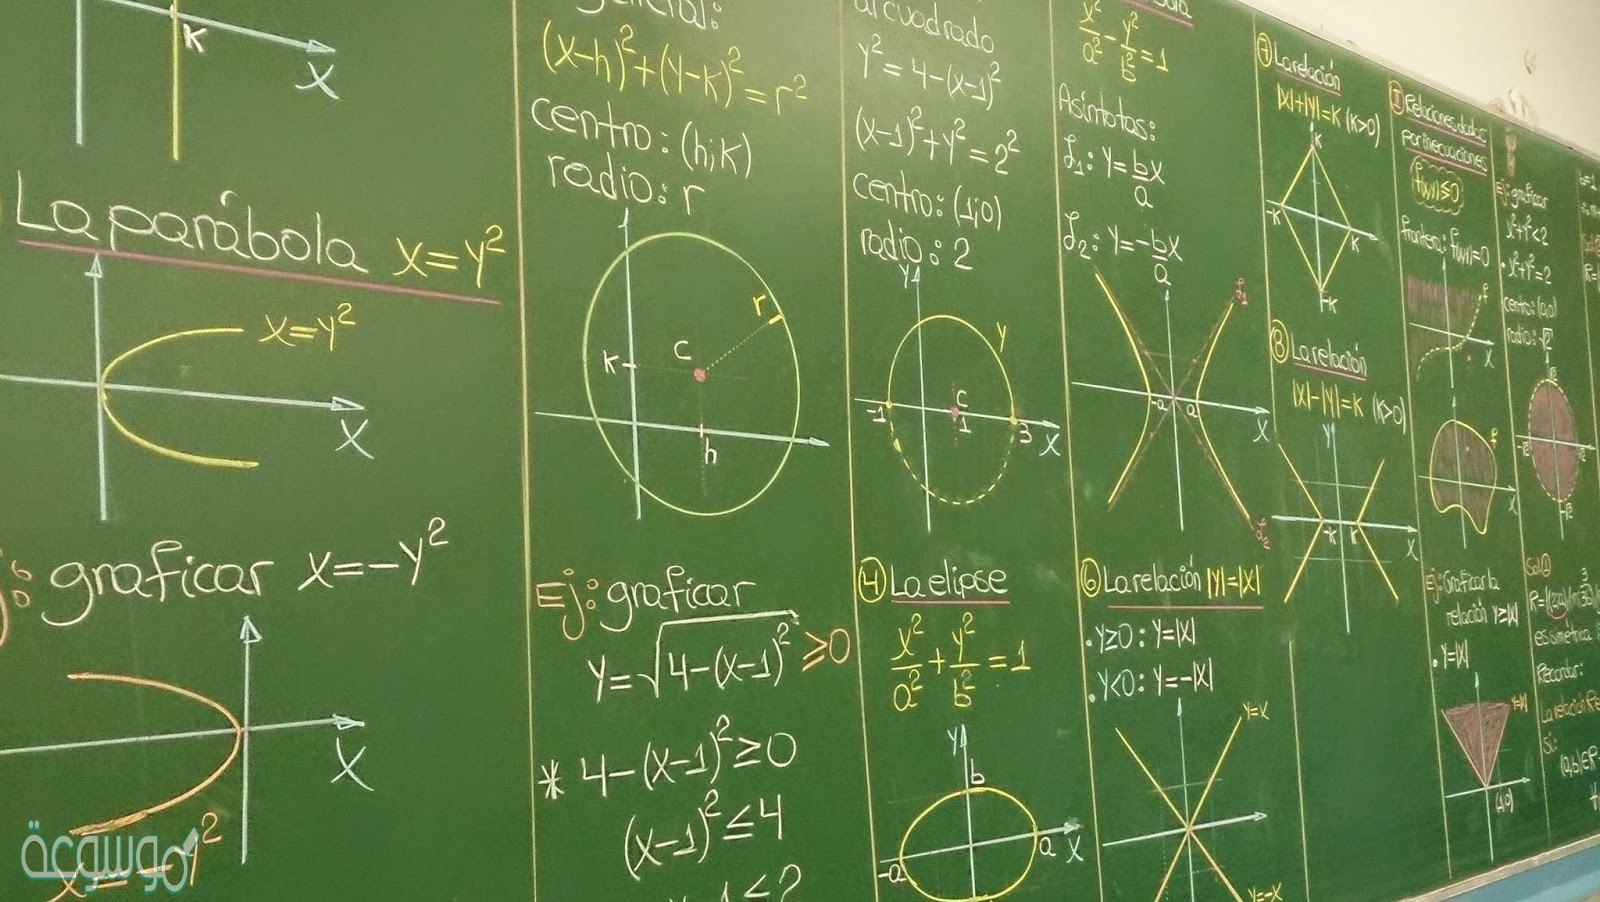 K
X
La parábola x=y²
x=y²
X
graficar x=-y²
X
x=-y²
(x-h)²+(y-k)²=r²
centro: (h;k)
radio: r
r
C
K
h
Ej: graficar
y=√4-(x-1)² ≥0
* 4-(x-1)²≥0
(x-1)²≤4
al cuadrado
y²=4-(x-1)²
(x-1)²+y²=2²
centro: (1;0)
radio: 2
y
y
C
-1
1
3
X
④ La elipse
x²/a²+y²/b²=1
y
b
-a
a
X
x²/a²-y²/b²=1
Asíntotas:
L₁: y=b/a x
L₂: y=-b/a x
L₁
-a
a
X
L₂
⑥ La relación |y|=|x|
• y≥0: y=|x|
• y<0: y=-|x|
y=x
y=-x
⑦ La relación
|x|+|y|=K (K>0)
K
-K
K
-K
⑧ La relación
|x|-|y|=K (K>0)
y
-K
K
X
Relaciones dadas
por inecuaciones
f(x,y)≤0
frontera: f(x,y)=0
f
X
f
X
Ej: Graficar la
relación y≥|x|
• y=|x|
y=|x|
Ej: graficar
x²+y²<2
• x²+y²=2
centro: (0,0)
radio: √2
√2
-√2
√2
-√2
es simétrica
Recordar:
La relación
Si:
موسوعة